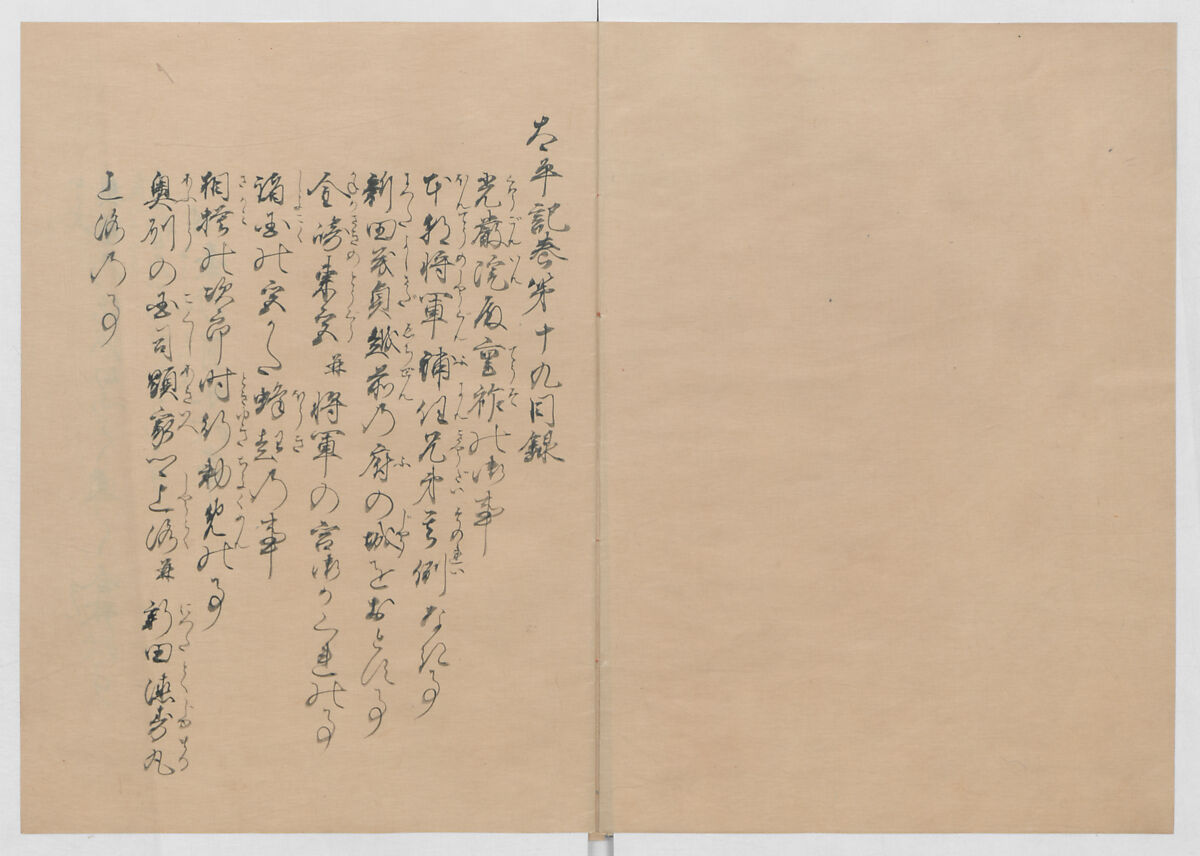 太平記巻第十九目録
光厳院殿重祚の御事
本朝将軍補任兄弟無其例なき事
新田義貞越前の府の城をおとす事
金崎東宮并将軍の宮御かくれの事
諸国の宮かた蜂起の事
相模の次郎時行勅免の事
奥州の国司顕家卿上洛并新田徳寿丸
上洛の事